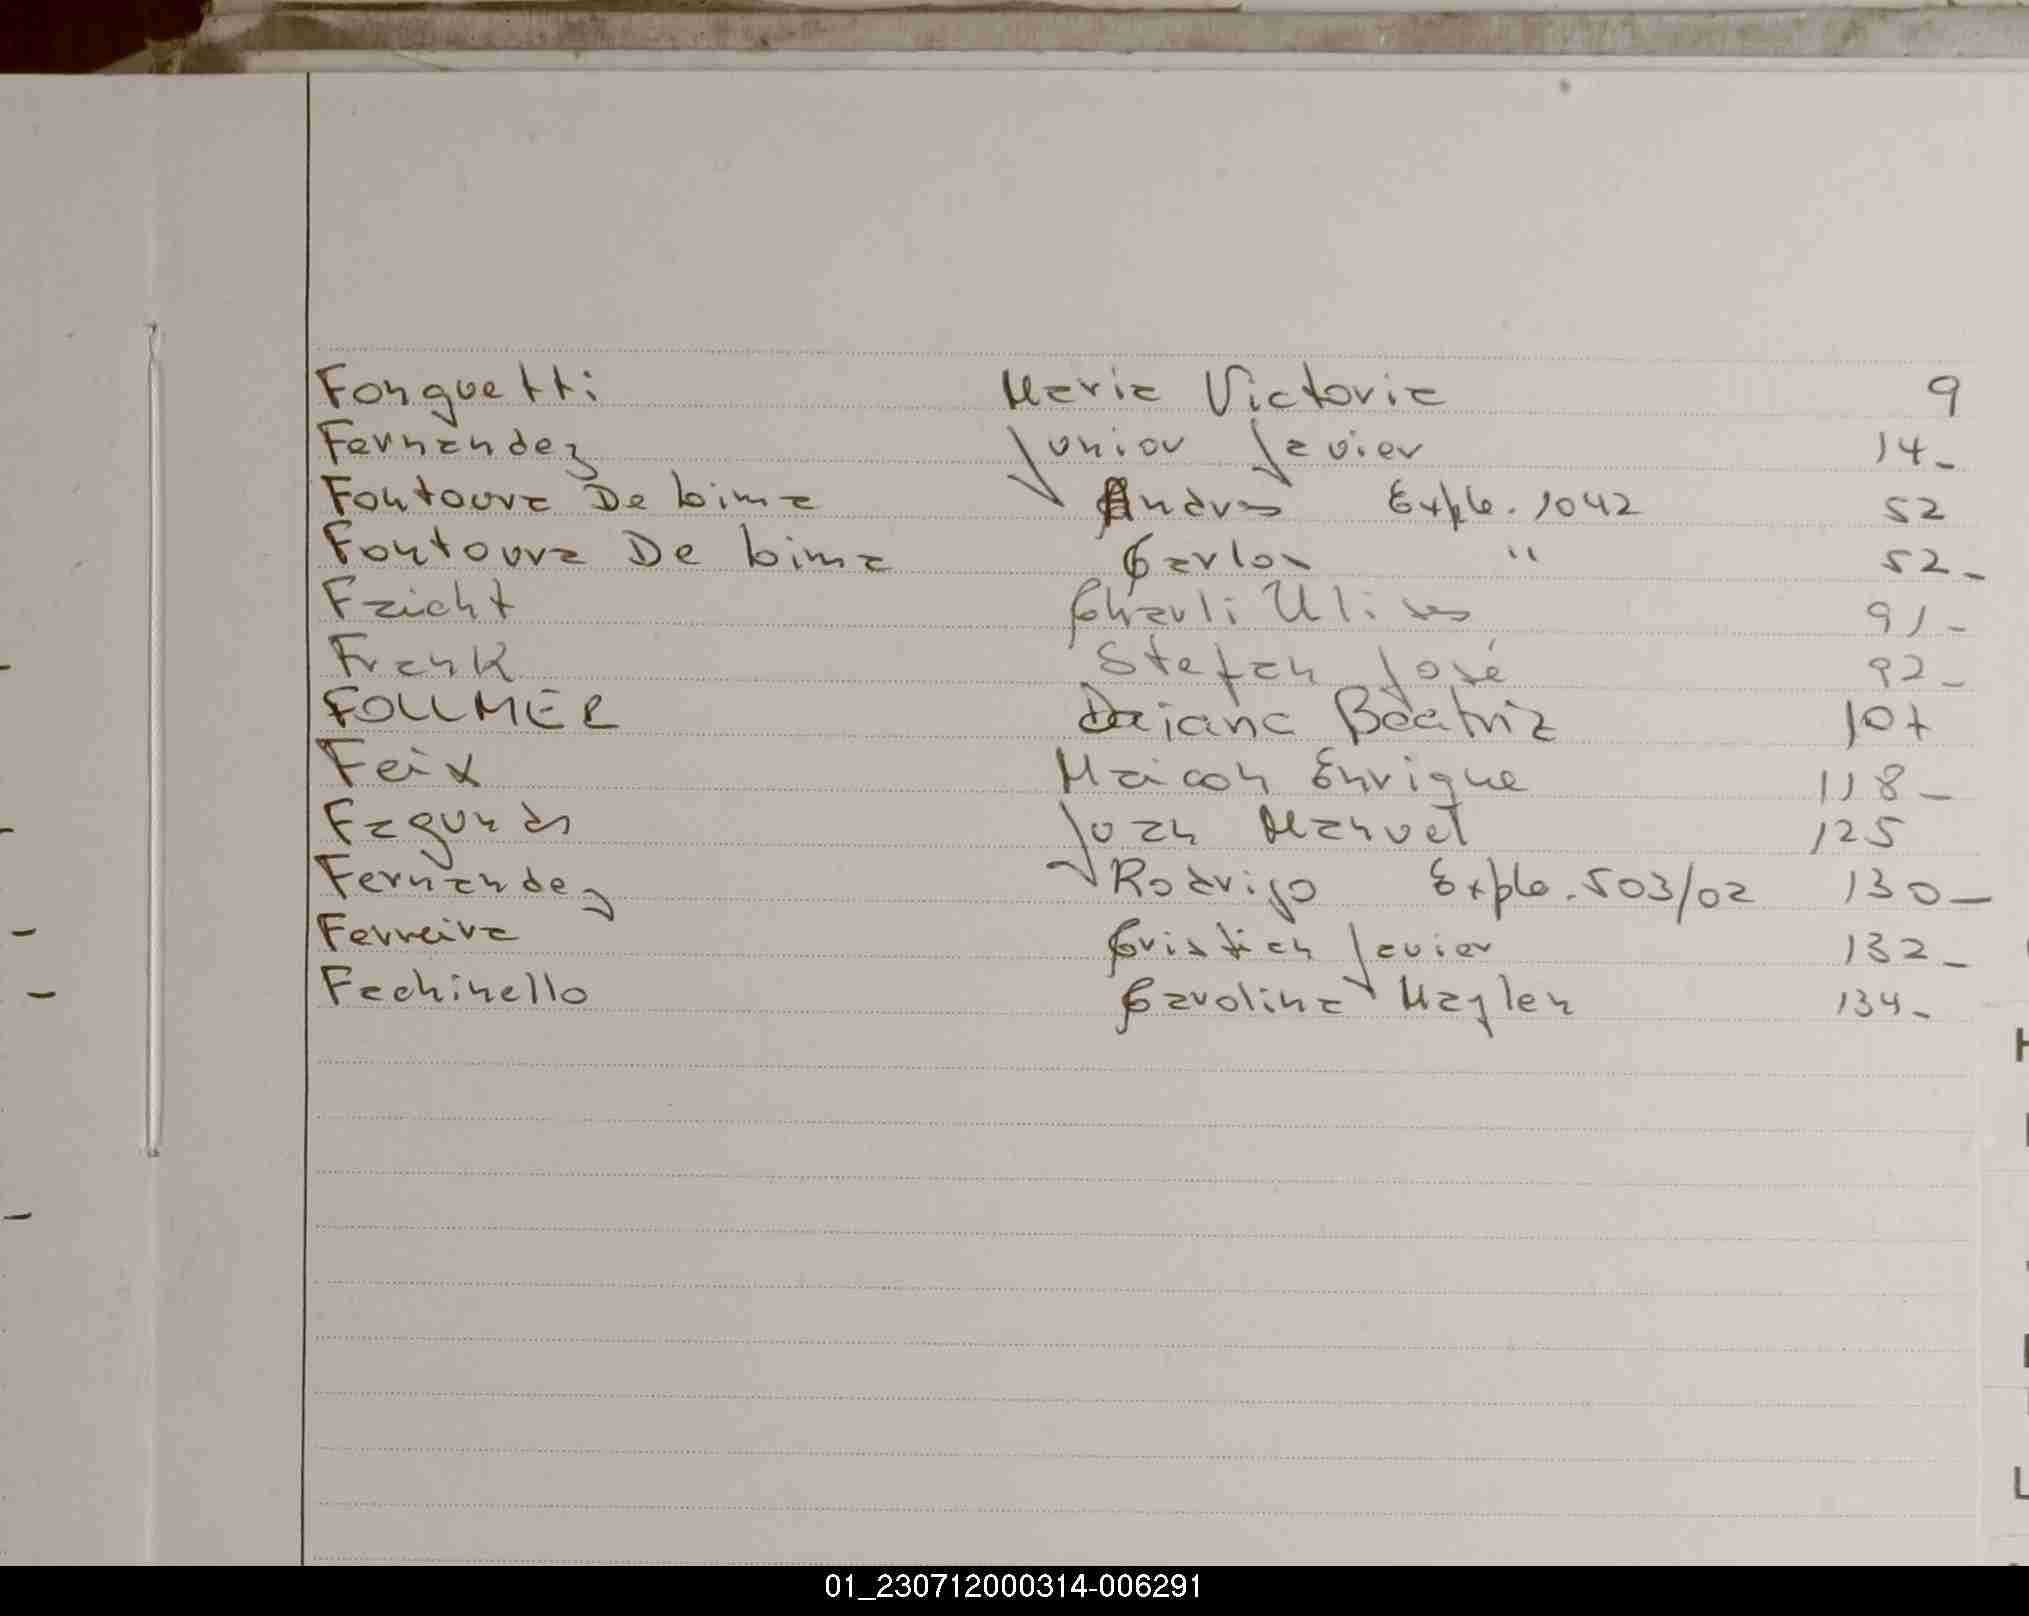 Fonguetti Maria Victoria 9
Fernandez Junior Javier 14_
Fontoura De Lima Andres Expte. 1042 52
Fontoura De Lima Carlos " 52_
Faicht Charli Ulises 91_
Frank Stefan José 92_
FOLLMER Daiana Beatriz 107
Feix Maicon Enrique 118_
Fagundes Juan Manuel 125
Fernandez Rodrigo Expte. 503/02 130_
Ferreira Cristian Javier 132_
Fachinello Carolina Maylen 134_
01_230712000314-006291